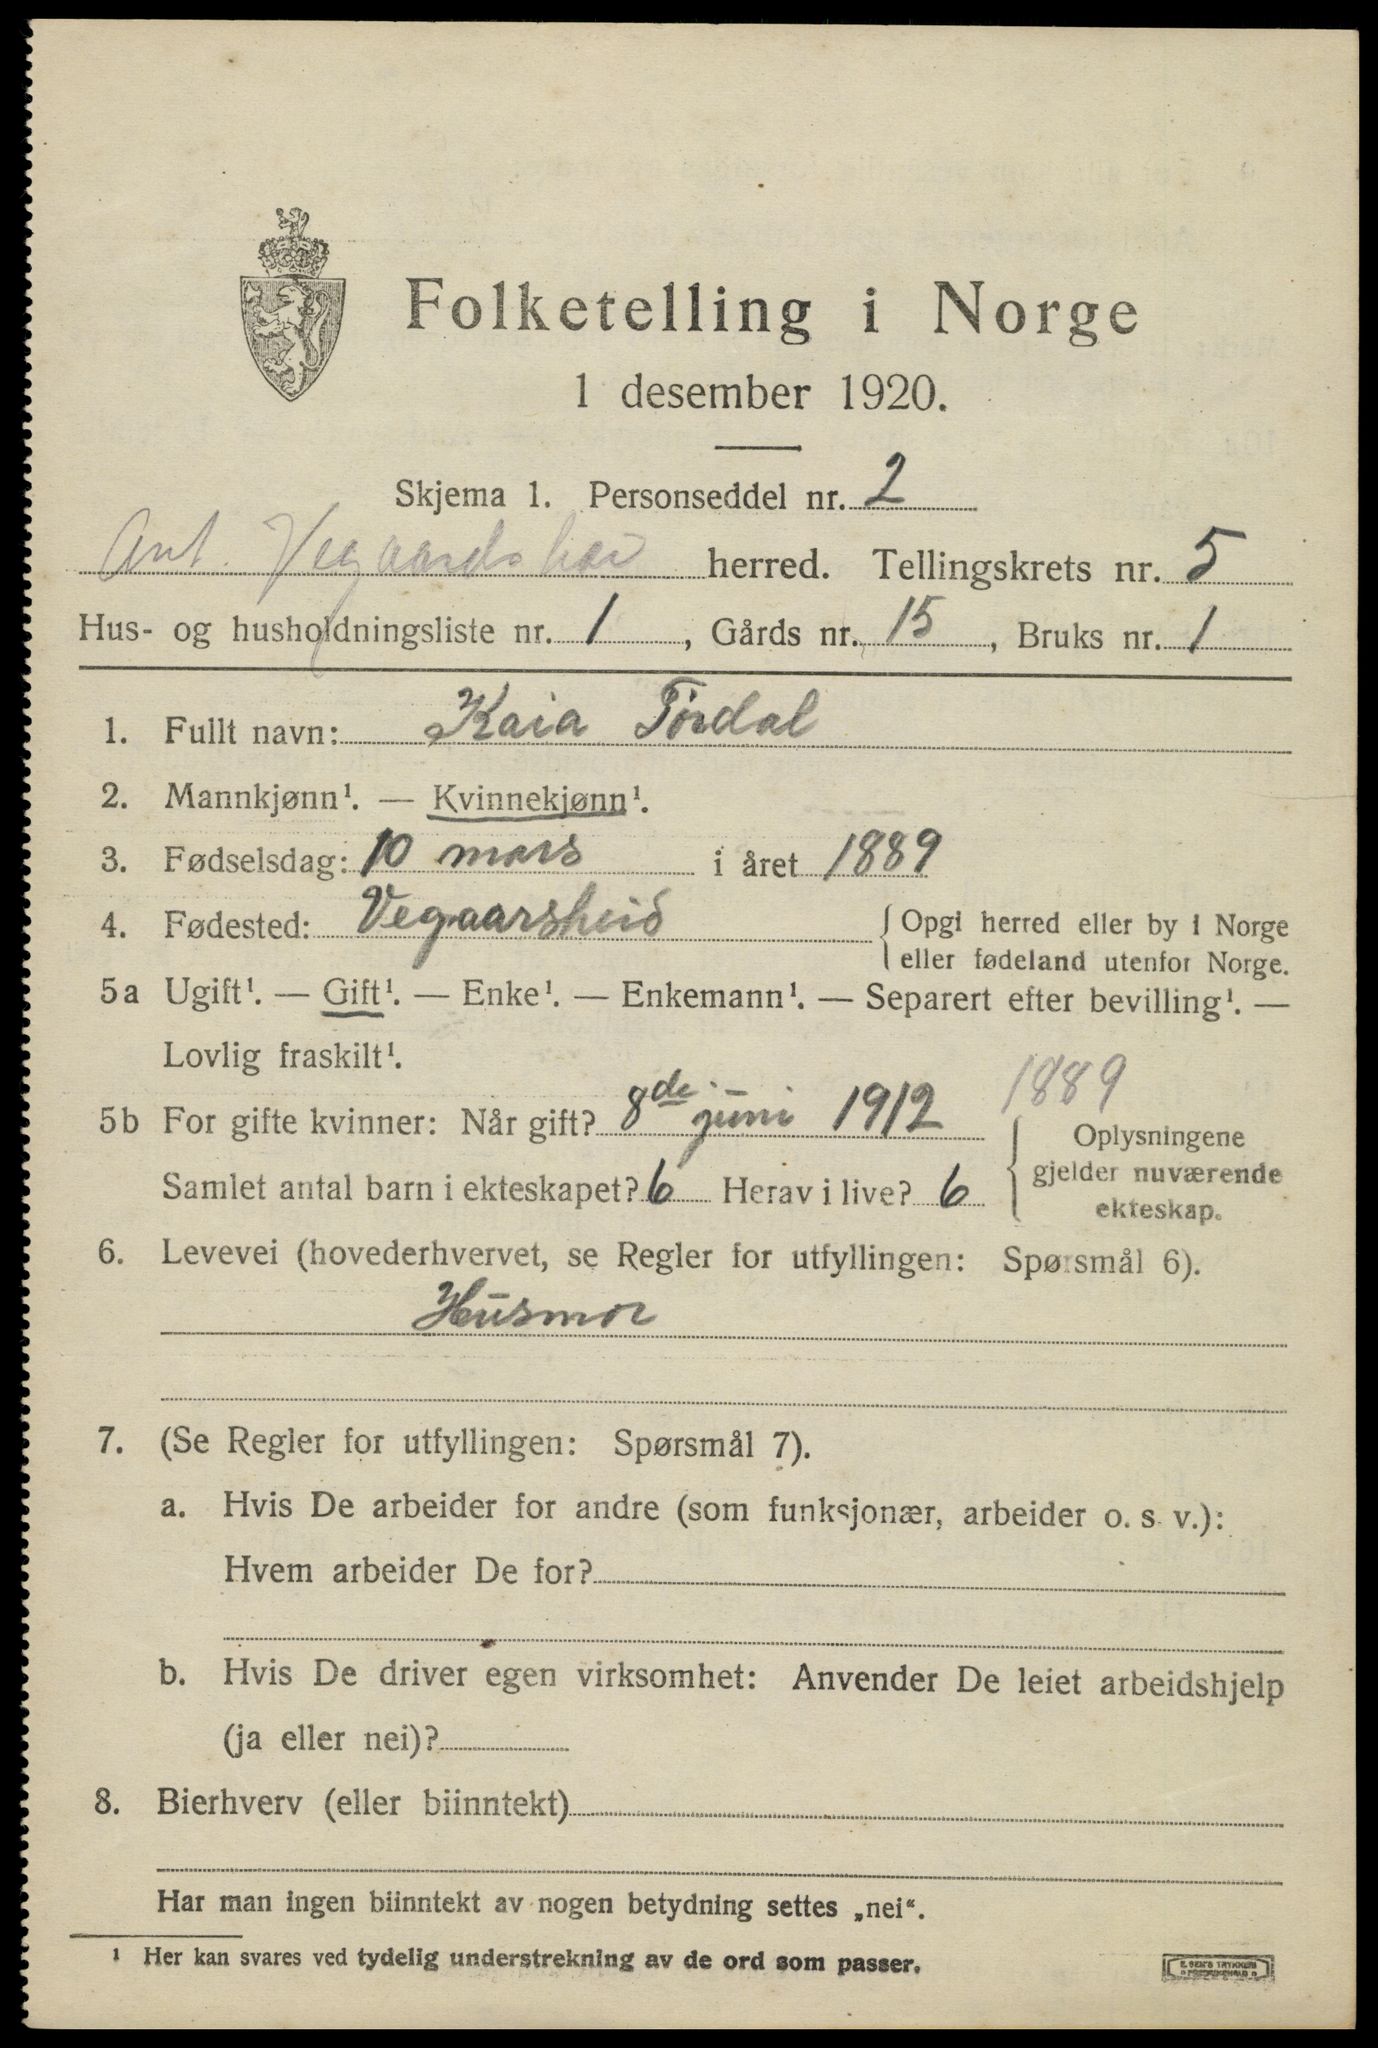 Folketelling i Norge
1 desember 1920.
Skjema 1. Personseddel nr. 2
Ant. Vegaardshei herred. Tellingskrets nr. 5
Hus- og husholdningsliste nr. 1, Gårds nr. 15, Bruks nr. 1
1. Fullt navn: Kaia Tördal
2. Mannkjønn¹. — Kvinnekjønn¹.
3. Fødselsdag: 10 mars i året 1889
4. Fødested: Vegaarsheid { Opgi herred eller by i Norge
eller fødeland utenfor Norge.
5a Ugift¹. — Gift¹. — Enke¹. — Enkemann¹. — Separert efter bevilling¹. —
Lovlig fraskilt¹.
1889
5b For gifte kvinner: Når gift? 8de juni 1912
Samlet antal barn i ekteskapet? 6 Herav i live? 6
{ Oplysningene
gjelder nuværende
ekteskap.
6. Levevei (hovederhvervet, se Regler for utfyllingen: Spørsmål 6).
Husmor
7. (Se Regler for utfyllingen: Spørsmål 7).
a. Hvis De arbeider for andre (som funksjonær, arbeider o. s. v.):
Hvem arbeider De for?
b. Hvis De driver egen virksomhet: Anvender De leiet arbeidshjelp
(ja eller nei)?
8. Bierhverv (eller biinntekt)
Har man ingen biinntekt av nogen betydning settes „nei“.
¹ Her kan svares ved tydelig understrekning av de ord som passer.